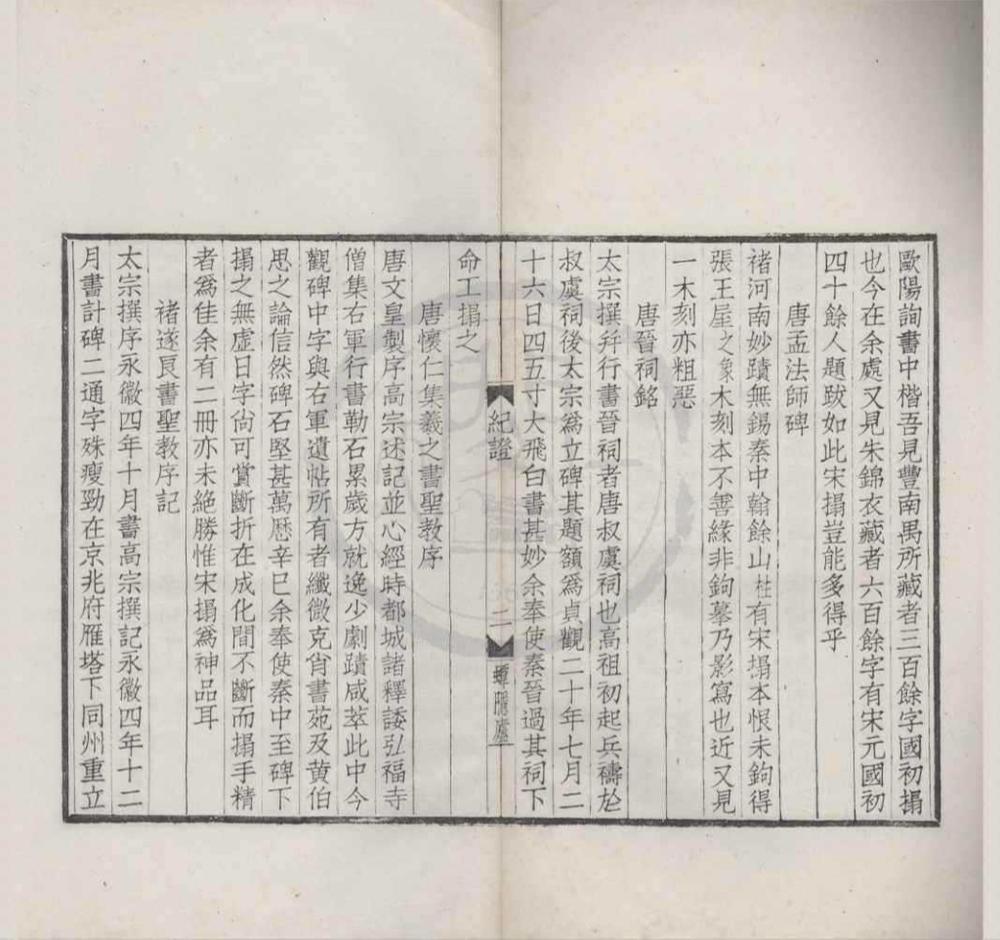 歐陽詢書中楷吾見豐南禺所藏者三百餘字國初搨
也今在余處又見朱錦衣藏者六百餘字有宋元國初
四十餘人題跋如此宋搨豈能多得乎
唐孟法師碑
褚河南妙蹟無錫秦中翰餘山柱有宋塌本恨未鉤得
張王屋之象木刻本不善緣非鉤摹乃影寫也近又見
一木刻亦粗惡
唐晉祠銘
太宗撰幷行書晉祠者唐叔虞祠也高祖初起兵禱於
叔虞祠後太宗爲立碑其題額爲貞觀二十年七月二
十六日四五寸大飛白書甚妙余奉使秦晉過其祠下
紀證
二
蟫隱廬
命工搨之
唐懷仁集羲之書聖教序
唐文皇製序高宗述記並心經時都城諸釋諉弘福寺
僧集右軍行書勒石累歲方就逸少劇蹟咸萃此中今
觀碑中字與右軍遺帖所有者纖微克肖書苑及黃伯
思之論信然碑石堅甚萬曆辛巳余奉使秦中至碑下
搨之無虛日字尙可賞斷折在成化間不斷而搨手精
者爲佳余有二冊亦未絶勝惟宋搨爲神品耳
褚遂良書聖教序記
太宗撰序永徽四年十月書高宗撰記永徽四年十二
月書計碑二通字殊瘦勁在京兆府雁塔下同州重立